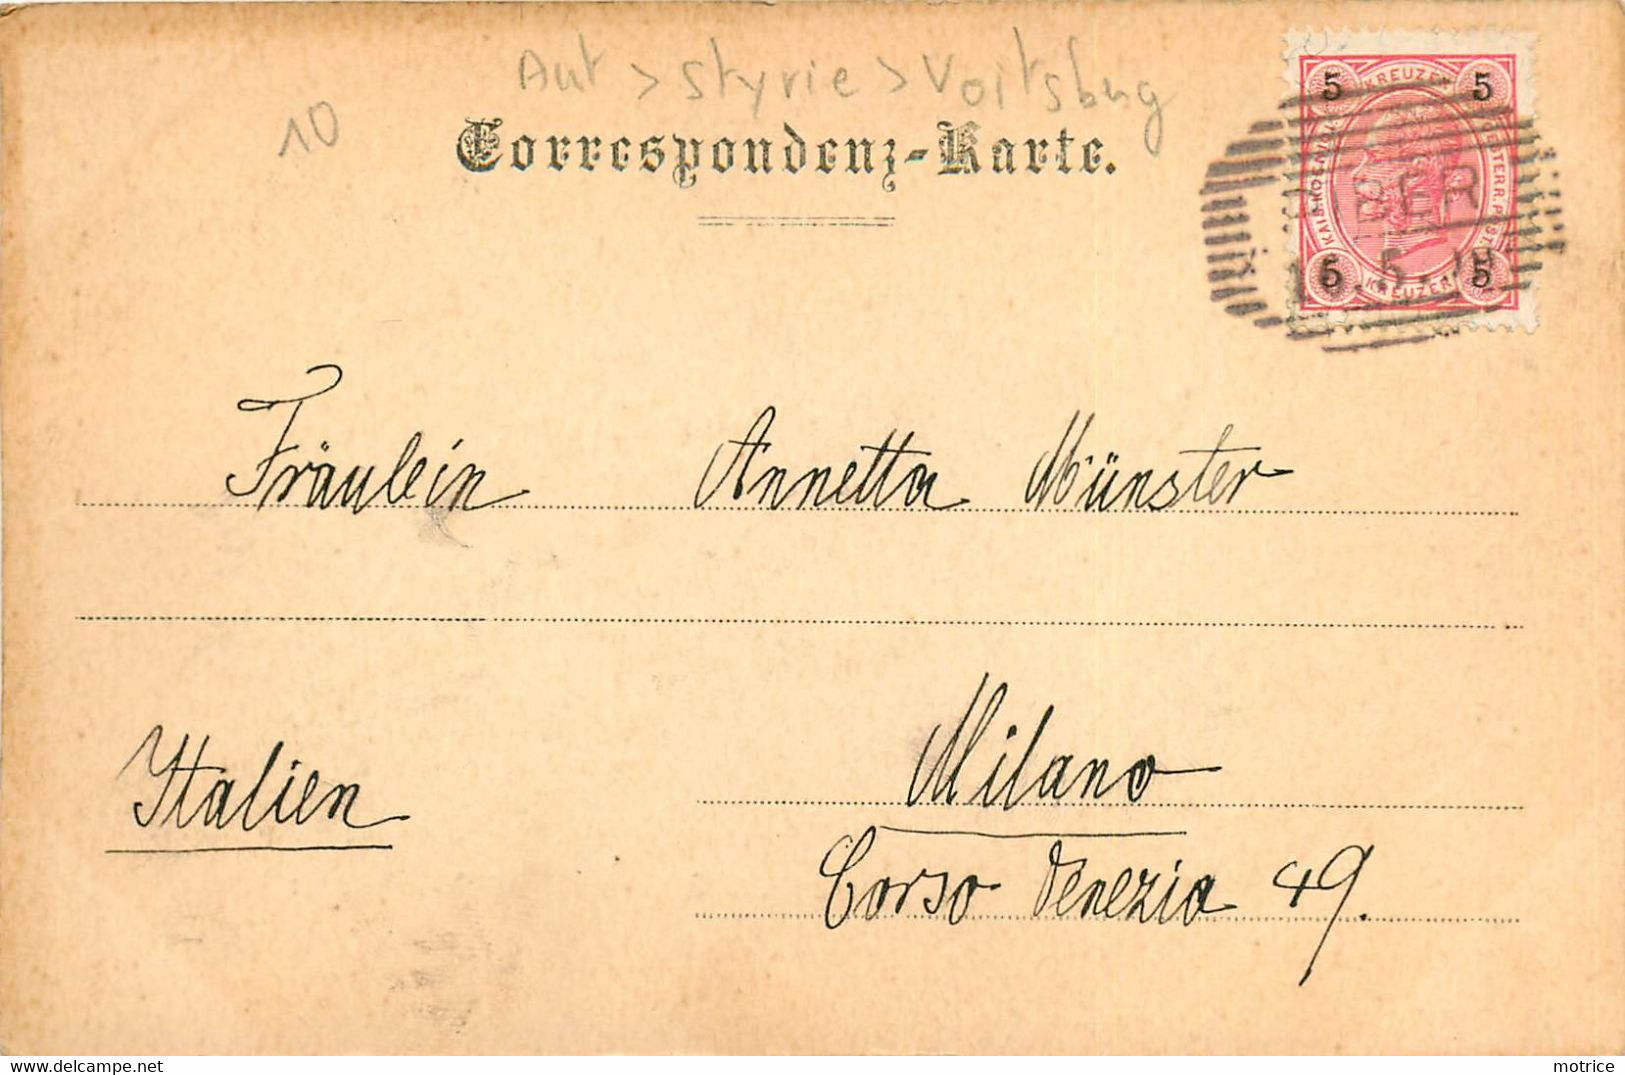 Aut > Styrie > Voitsbug
10
Correspondenz-Karte.
5 KREUZER 5
KAIS. KOENIGL. OESTERR. POST.
5 KREUZER 5
Fräulein Annetta Münster
Italien
Milano
Corso Venezia 49.
motrice